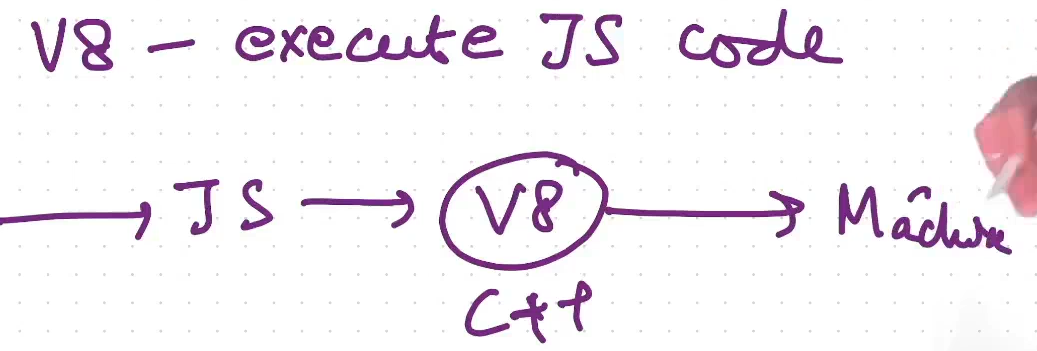 V8 - execute JS code
JS V8 Machine
C++